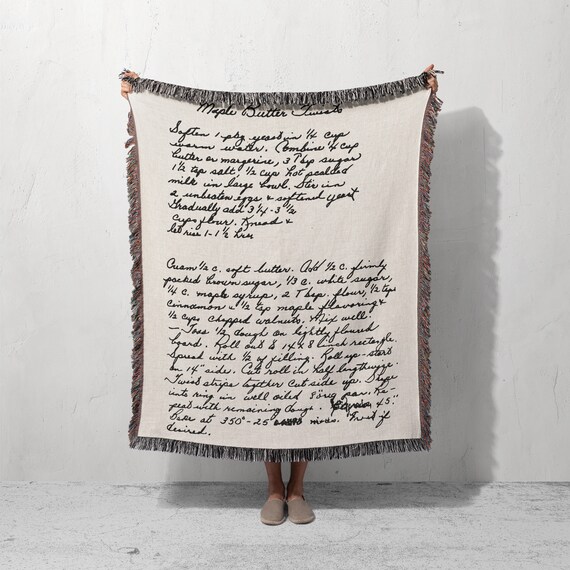 Maple Butter Twists
Soften 1 pkg yeast in 1/4 cup
warm water. Combine 1/4 cup
butter or margerine, 3 Tbsp sugar
1 1/2 tsp salt, 1/2 cup hot scalded
milk in large bowl. Stir in
2 unbeaten eggs & softened yeast
Gradually add 3 1/4 - 3 1/2
cups flour. Knead &
let rise 1 - 1 1/2 hrs
Cream 1/2 c. soft butter. Add 1/2 c. firmly
packed brown sugar, 1/3 c. white sugar,
1/4 c. maple syrup, 2 Tbsp. flour, 1/2 tsp
cinnamon & 1/2 tsp maple flavoring &
1/2 cup chopped walnuts. Mix well.
- Toss 1/2 dough on lightly floured
board. Roll out to 14 x 8 inch rectangle.
Spread with 1/2 of filling. Roll up - start
on 14" side. Cut roll in half lengthwise.
Twist strips together cut side up. Shape
into ring in well oiled 8" rig pan. Re-
peat with remaining dough. 45"
Bake at 350° - 25 mins. Frost if
desired.